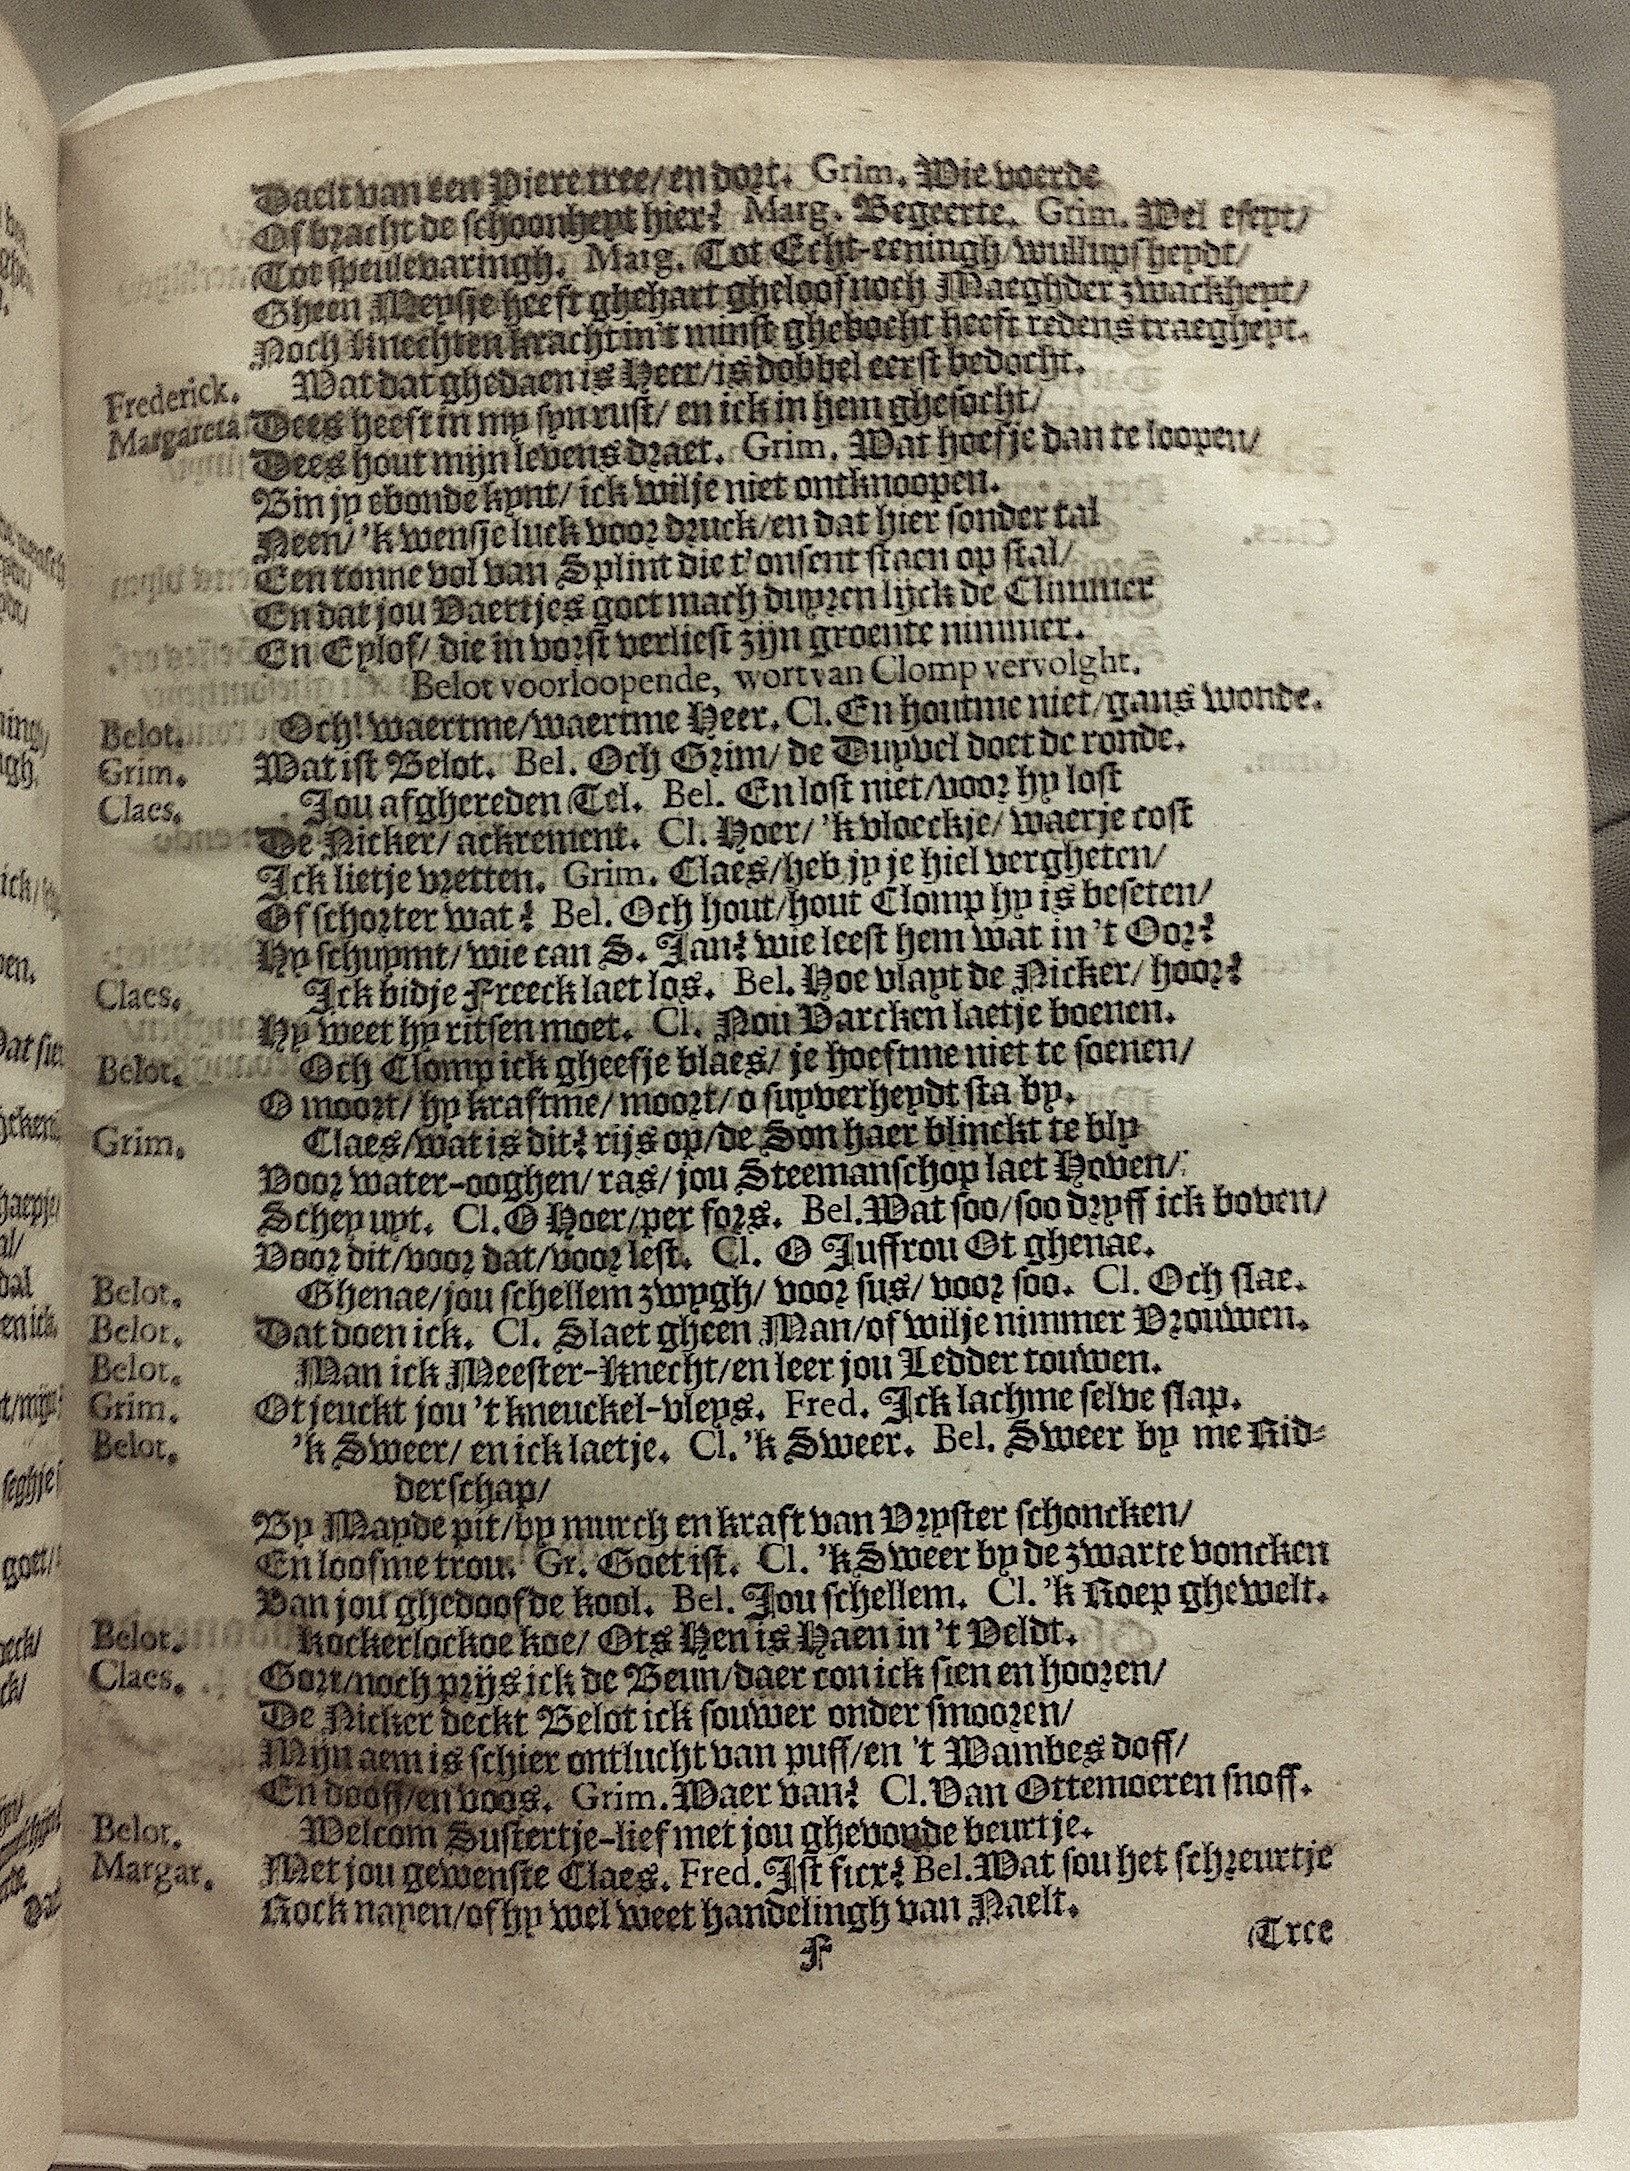 Daelt van een Piere tree/ en dort. Grim. Wie voerde
Of bracht de schoonheyt hier? Marg. Begeerte. Grim. Wel eseyt/
Tot speulevaringh. Marg. Tot Echt-eeningh/ wullupsheydt/
Gheen Meysje heeft ghehart gheloof noch Maeghder zwackheyt/
Noch knechten kracht in't minst ghebocht heeft redens traegheyt.
Frederick. Wat dat ghedaen is Heer/ is dobbel eerst bedocht.
Margareta. Dees heeft in my syn rust/ en ick in hem ghesocht/
Dees hout mijn levens draet. Grim. Wat hoefje dan te loopen/
Bin jy ebonde kynt/ ick wilje niet ontknoopen.
Neen/ 'k wensje luck voor druck/ en dat hier sonder tal
Een tonne vol van Splint die t'onsent staen op stal/
En dat jou Vaertjes goet mach duyren lijck de Climmer
En Eylof/ die in vorst verliest zijn groente nimmer.
Belot voorloopende, wort van Clomp vervolght.
Belot. Och! waertme/ waertme Heer. Cl. En houtme niet/ gans wonde.
Grim. Wat ist Belot. Bel. Och Grim/ de Duyvel doet de ronde.
Claes. Jou afghereden Tel. Bel. En lost niet/ voor hy lost
De Nicker/ ackrement. Cl. Hoer/ 'k vloeckje/ waerje cost
Ick lietje vretten. Grim. Claes/ heb jy je hiel vergheten/
Of schorter wat? Bel. Och hout/ hout Clomp hy is beseten/
Hy schuymt/ wie can S. Jan? wie leest hem wat in 't Oor?
Claes. Ick bidje Freeck laet los. Bel. Hoe vlayt de Nicker/ hoor?
Hy weet hy ritsen moet. Cl. Nou Varcken laetje boenen.
Belot. Och Clomp ick gheefje blaes/ je hoeftme niet te soenen/
O moort/ hy kraftme/ moort/ o suyverheydt sta by.
Grim. Claes/ wat is dit? rijs op/ de Son haer blinckt te bly
Voor water-ooghen/ ras/ jou Steemanschop laet Hoven/
Schey uyt. Cl. O Hoer/ per fors. Bel. Wat soo/ soo dryff ick boven/
Voor dit/ voor dat/ voor lest. Cl. O Juffrou Ot ghenae.
Belot. Ghenae/ jou schellem zwygh/ voor sus/ voor soo. Cl. Och slae.
Belot. Dat doen ick. Cl. Slaet gheen Man/ of wilje nimmer Vrouwen.
Belot. Man ick Meester-knecht/ en leer jou Ledder touwen.
Grim. Ot jeuckt jou 't kneuckel-vleys. Fred. Ick lachme selve slap.
Belot. 'k Sweer/ en ick laetje. Cl. 'k Sweer. Bel. Sweer by me Rid-
derschap/
By Mayde pit/ by murch en kraft van Vryster schoncken/
En loofme trou. Gr. Goet ist. Cl. 'k Sweer by de zwarte voncken
Van jou ghedoofde kool. Bel. Jou schellem. Cl. 'k Roep ghewelt.
Belot. Kockerlockoe koe/ Ots Hen is Haen in 't Veldt.
Claes. Gort/ noch prijs ick de Beun/ daer con ick sien en hooren/
De Nicker deckt Belot ick souwer onder smooren/
Mijn aem is schier ontlucht van puff/ en 't Wambes doff/
En dooff/ en voos. Grim. Waer van? Cl. Van Ottemoeren snoff.
Belot. Welcom Sustertje-lief met jou ghevonde beurtje.
Margar. Met jou gewenste Claes. Fred. Ist ficx? Bel. Wat sou het schreurtje
Rock nayen/ of hy wel weet handelingh van Naelt.
F Tree